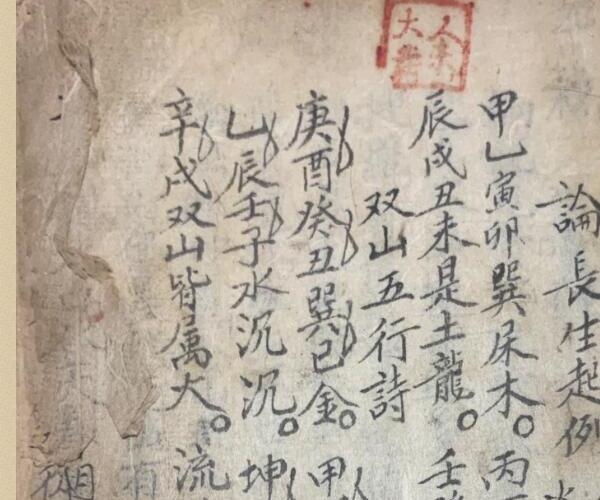 論長生起例
甲乙寅卯巽属木。丙
辰戌丑未是土龍。壬
双山五行詩
庚酉癸丑巽巳金。甲
乙辰壬子水沉沉。坤
辛戌双山皆属火。流